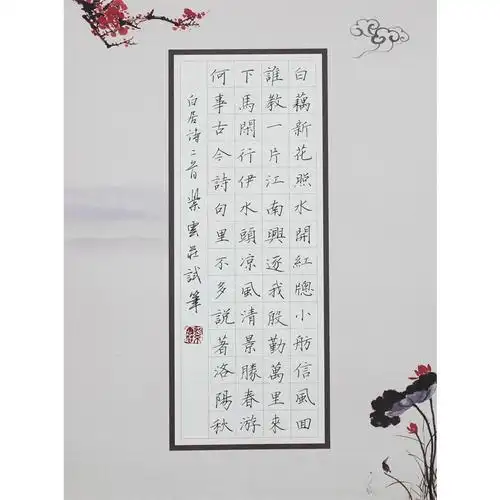 白藕新花照水開紅牕小舫信風回
誰教一片江南興逐我殷勤萬里來
下馬閑行伊水頭凉風清景勝春游
何事古今詩句里不多説著洛陽秋
白居詩二首 紫雲莊試筆